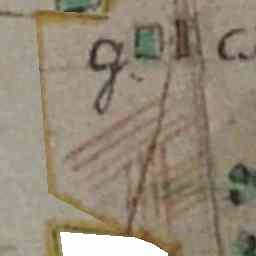 g. c.